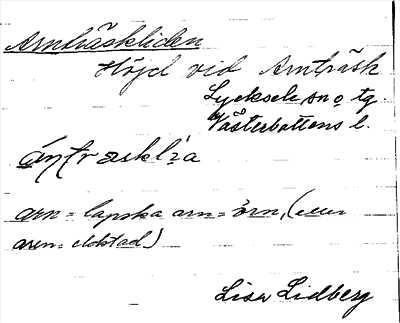 Arnträskliden
Höjd vid Arnträsk
Lycksele sn o tg.
Västerbottens l.
arn = lapska arn = örn, (eller
aren = eldstad)
Lisa Lidberg